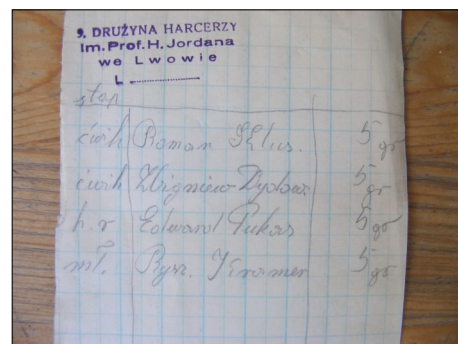 9. DRUŻYNA HARCERZY
Im. Prof. H. Jordana
we Lwowie
L
stop
ćwik Roman 5 gr
ćwik Zbigniew 5 gr
h.r Edward 5 gr
mł. Rysz. Kramer 5 gr